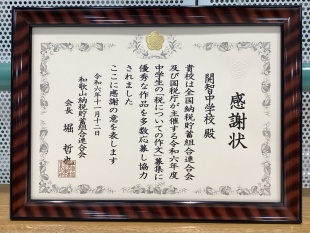 感謝状
開智中学校 殿
貴校は全国納税貯蓄組合連合会
及び国税庁が主催する令和六年度
中学生の「税についての作文」募集に
優秀な作品を多数応募し協力
されました
ここに感謝の意を表します
令和六年十一月十二日
和歌山納税貯蓄組合連合会
会長 堀 哲也